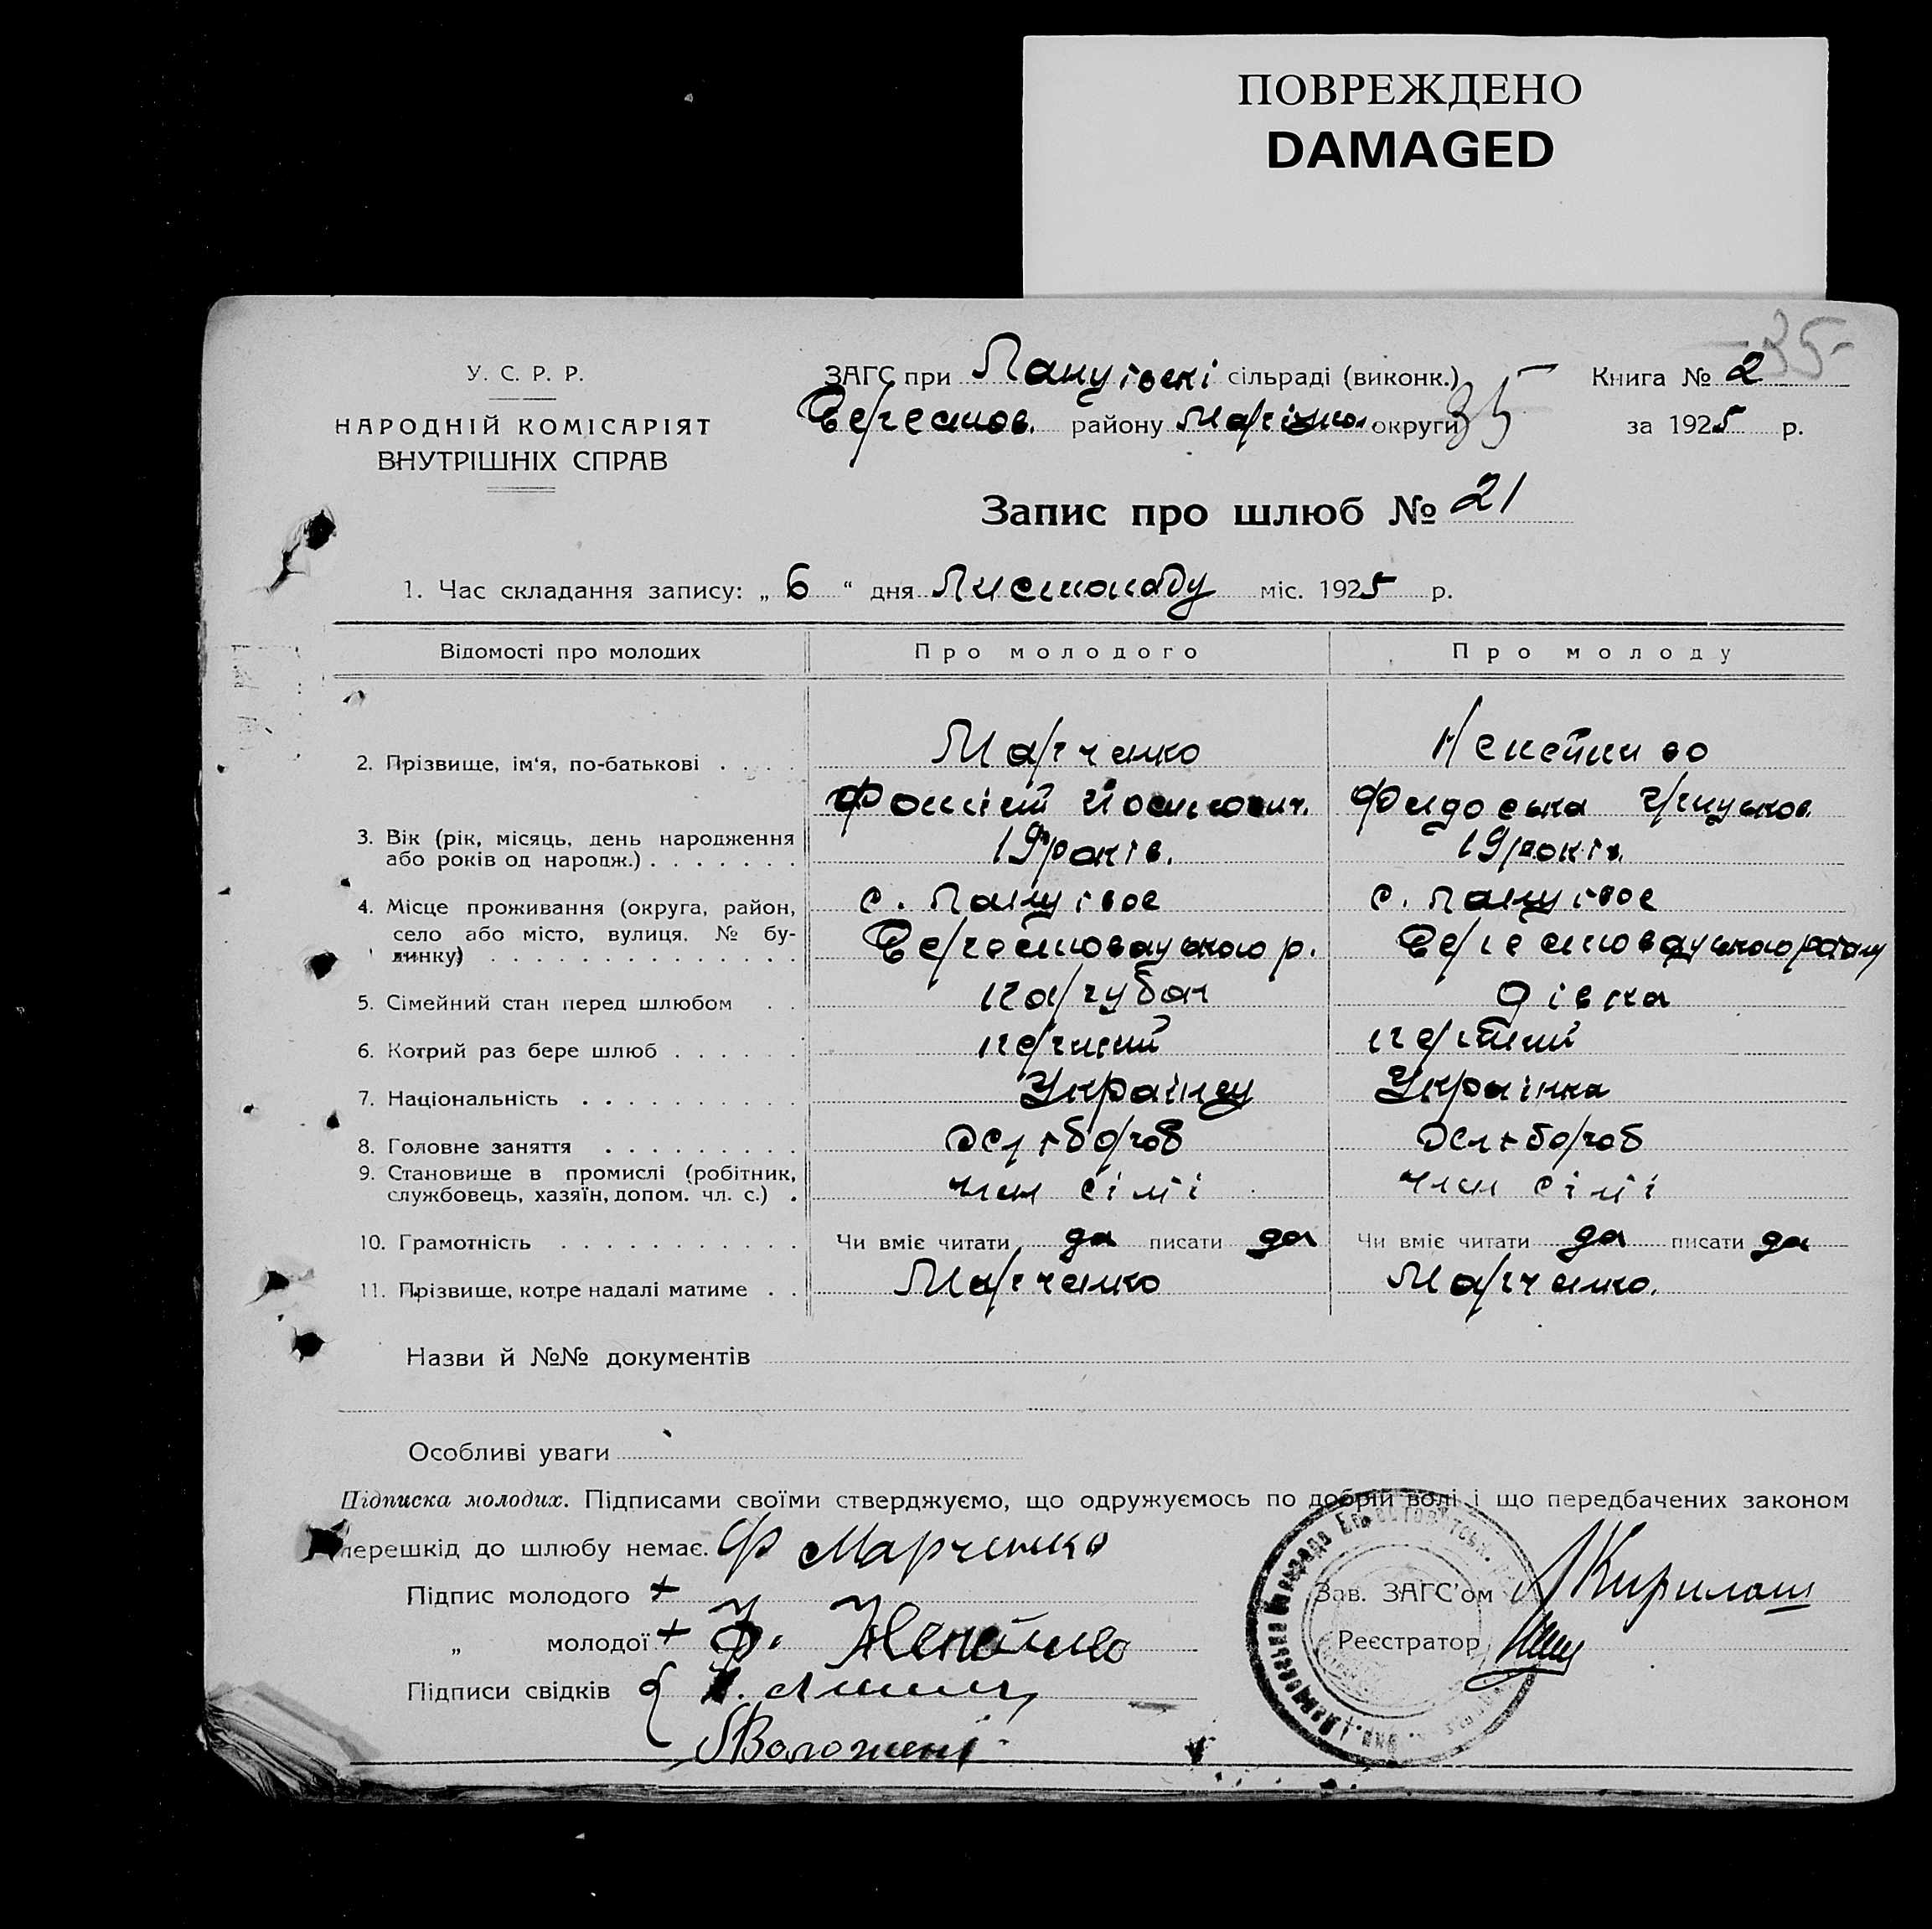 ПОВРЕЖДЕНО
DAMAGED
35
У. С. Р. Р.
НАРОДНІЙ КОМІСАРІЯТ
ВНУТРІШНІХ СПРАВ
ЗАГС при сільраді (виконк.)
Берестов. району округи 35
Книга № 2
за 1925 р.
Запис про шлюб № 21
1. Час складання запису: „ 6 “ дня Листопаду міс. 1925 р.
Відомості про молодих Про молодого Про молоду
2. Прізвище, ім‘я, по-батькові . . . . Марченко
Йосипович.
3. Вік (рік, місяць, день народження
або років од народж.) . . . . . . . 19 років. 19 років.
4. Місце проживання (округа, район, с. с.
село або місто, вулиця, № бу-
динку) . . . . . . . . . . . . . . Берестовецького р. Берестовецького району
5. Сімейний стан перед шлюбом . . парубок дівка
6. Котрий раз бере шлюб . . . . . . перший перший
7. Національність . . . . . . . . . . Українец Українка
8. Головне заняття . . . . . . . . . хлібороб хлібороб
9. Становище в промислі (робітник,
службовець, хазяїн, допом. чл. с.) . член сімї член сімї
10. Грамотність . . . . . . . . . . . Чи вміє читати да писати да Чи вміє читати да писати да
11. Прізвище, котре надалі матиме . . Марченко Марченко.
Назви й №№ документів
Особливі уваги
Підписка молодих. Підписами своїми стверджуємо, що одружуємось по добрій волі і що передбачених законом
перешкід до шлюбу немає. Ф Марченко
Підпис молодого +
„ молодої + Ф.
Підписи свідків
Зав. ЗАГС'ом
Реєстратор